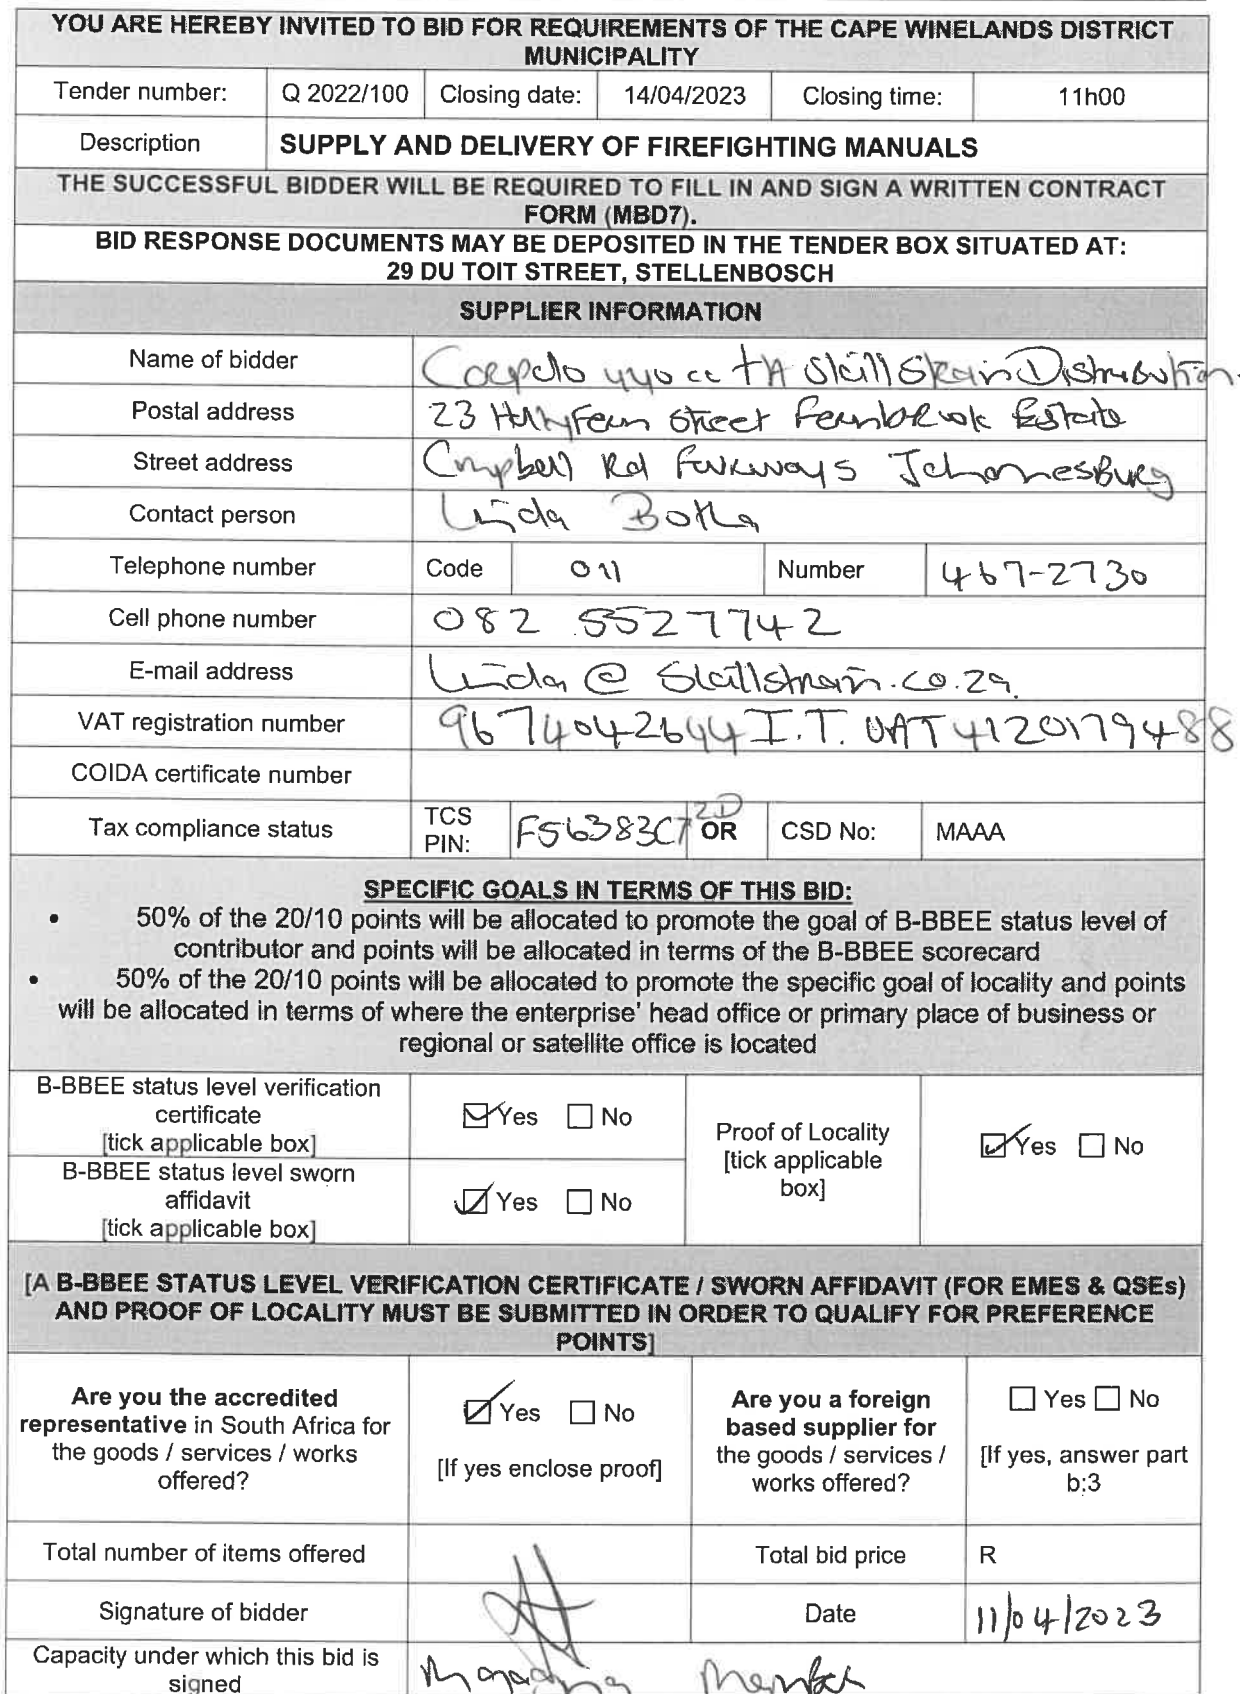 YOU ARE HEREBY INVITED TO BID FOR REQUIREMENTS OF THE CAPE WINELANDS DISTRICT
MUNICIPALITY
Tender number: Q 2022/100 Closing date: 14/04/2023 Closing time: 11h00
Description SUPPLY AND DELIVERY OF FIREFIGHTING MANUALS
THE SUCCESSFUL BIDDER WILL BE REQUIRED TO FILL IN AND SIGN A WRITTEN CONTRACT
FORM (MBD7).
BID RESPONSE DOCUMENTS MAY BE DEPOSITED IN THE TENDER BOX SITUATED AT:
29 DU TOIT STREET, STELLENBOSCH
SUPPLIER INFORMATION
Name of bidder 440 cc tA Distribution
Postal address 23 Street Fernbrook Estate
Street address Campbell Rd Fourways Johannesburg
Contact person Linda Botha
Telephone number Code 011 Number 467-2730
Cell phone number 082 5527742
E-mail address Linda@skillstrain.co.za
VAT registration number 9674042644 I.T. VAT 4120179488
COIDA certificate number
Tax compliance status TCS PIN: F56383C72D OR CSD No: MAAA
SPECIFIC GOALS IN TERMS OF THIS BID:
• 50% of the 20/10 points will be allocated to promote the goal of B-BBEE status level of
contributor and points will be allocated in terms of the B-BBEE scorecard
• 50% of the 20/10 points will be allocated to promote the specific goal of locality and points
will be allocated in terms of where the enterprise' head office or primary place of business or
regional or satellite office is located
B-BBEE status level verification
certificate
[tick applicable box]
Yes No
B-BBEE status level sworn
affidavit
[tick applicable box]
Yes No
Proof of Locality
[tick applicable
box]
Yes No
[A B-BBEE STATUS LEVEL VERIFICATION CERTIFICATE / SWORN AFFIDAVIT (FOR EMES & QSEs)
AND PROOF OF LOCALITY MUST BE SUBMITTED IN ORDER TO QUALIFY FOR PREFERENCE
POINTS]
Are you the accredited
representative in South Africa for
the goods / services / works
offered?
Yes No
[If yes enclose proof]
Are you a foreign
based supplier for
the goods / services /
works offered?
Yes No
[If yes, answer part
b:3
Total number of items offered Total bid price R
Signature of bidder Date 11/04/2023
Capacity under which this bid is
signed
Managing Member